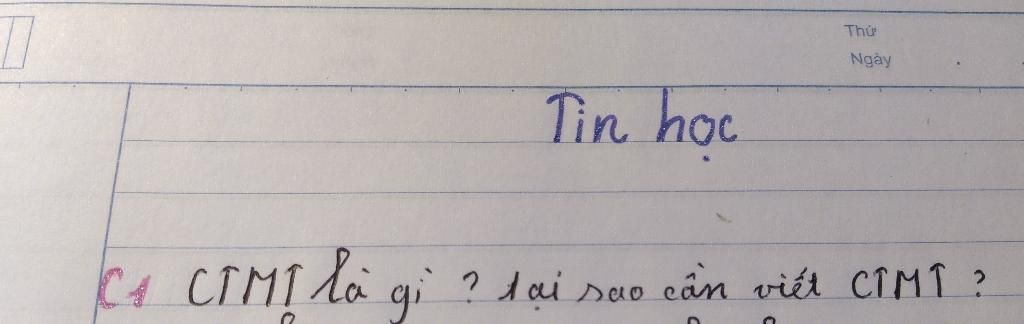 Thứ
Ngày
Tin học
C1 CTMT là gì ? tại sao cần viết CTMT ?